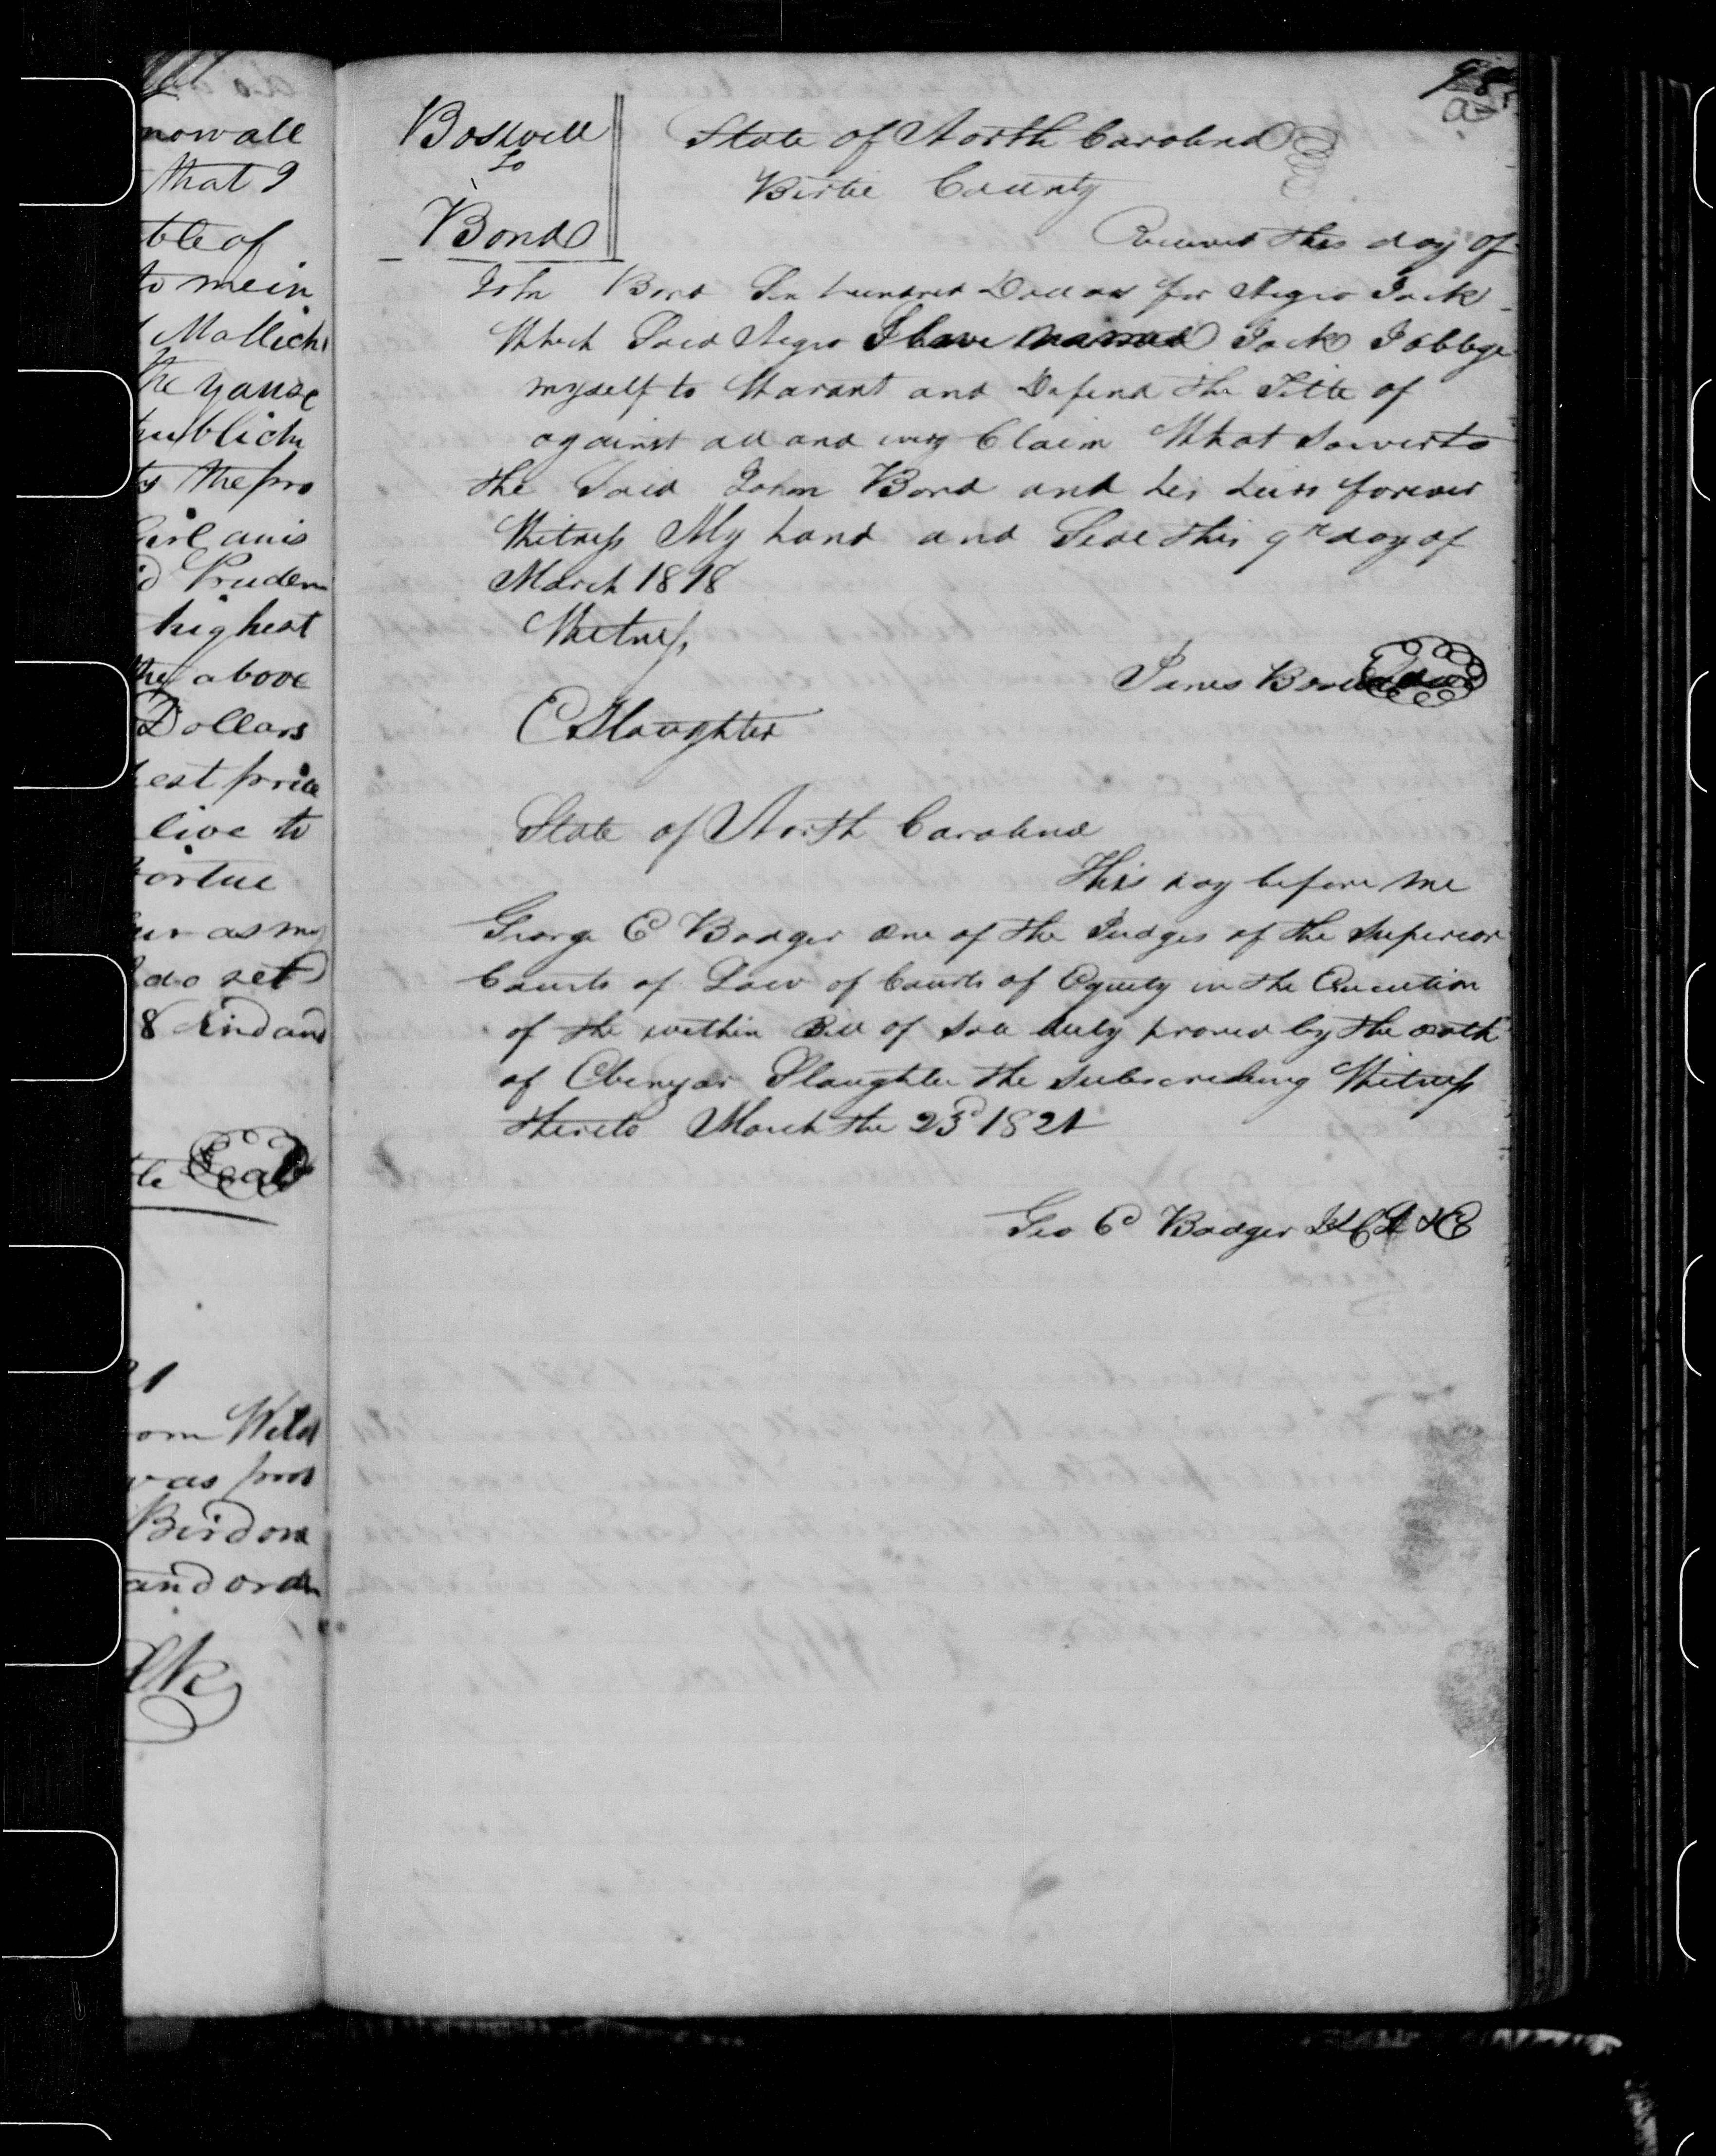 98
Boswell
to
Bond
State of North Carolina
Bertie County
Received this day of
John Bond Ten hundred Dollars for Negro Jack
Which Said Negro I have named Jack I obblige
myself to Warant and Defend the Title of
against all and every Claim What Soever to
the Said John Bond and his heirs forever
Witness My hand and Seal this 9th day of
March 1818
Witness
James Seal
E Slaughter
State of North Carolina
This day before me
George E Badger one of the Judges of the Superior
Courts of Law of Courts of Equity in the Execution
of the within Bill of Sale duly proved by the oath
of Ebenezar Slaughter the subscribing Witness
thereto March the 23d 1821
Geo E Badger
now all
that I
ble of
to me in
Mallichi
the yause
publick
ts the pro
Girl anis
d Pruden
highest
the above
Dollars
est price
live to
ortue
as my
do set
8 and
le Seal
21
om Will
was prov
Bird one
and orde
Clk